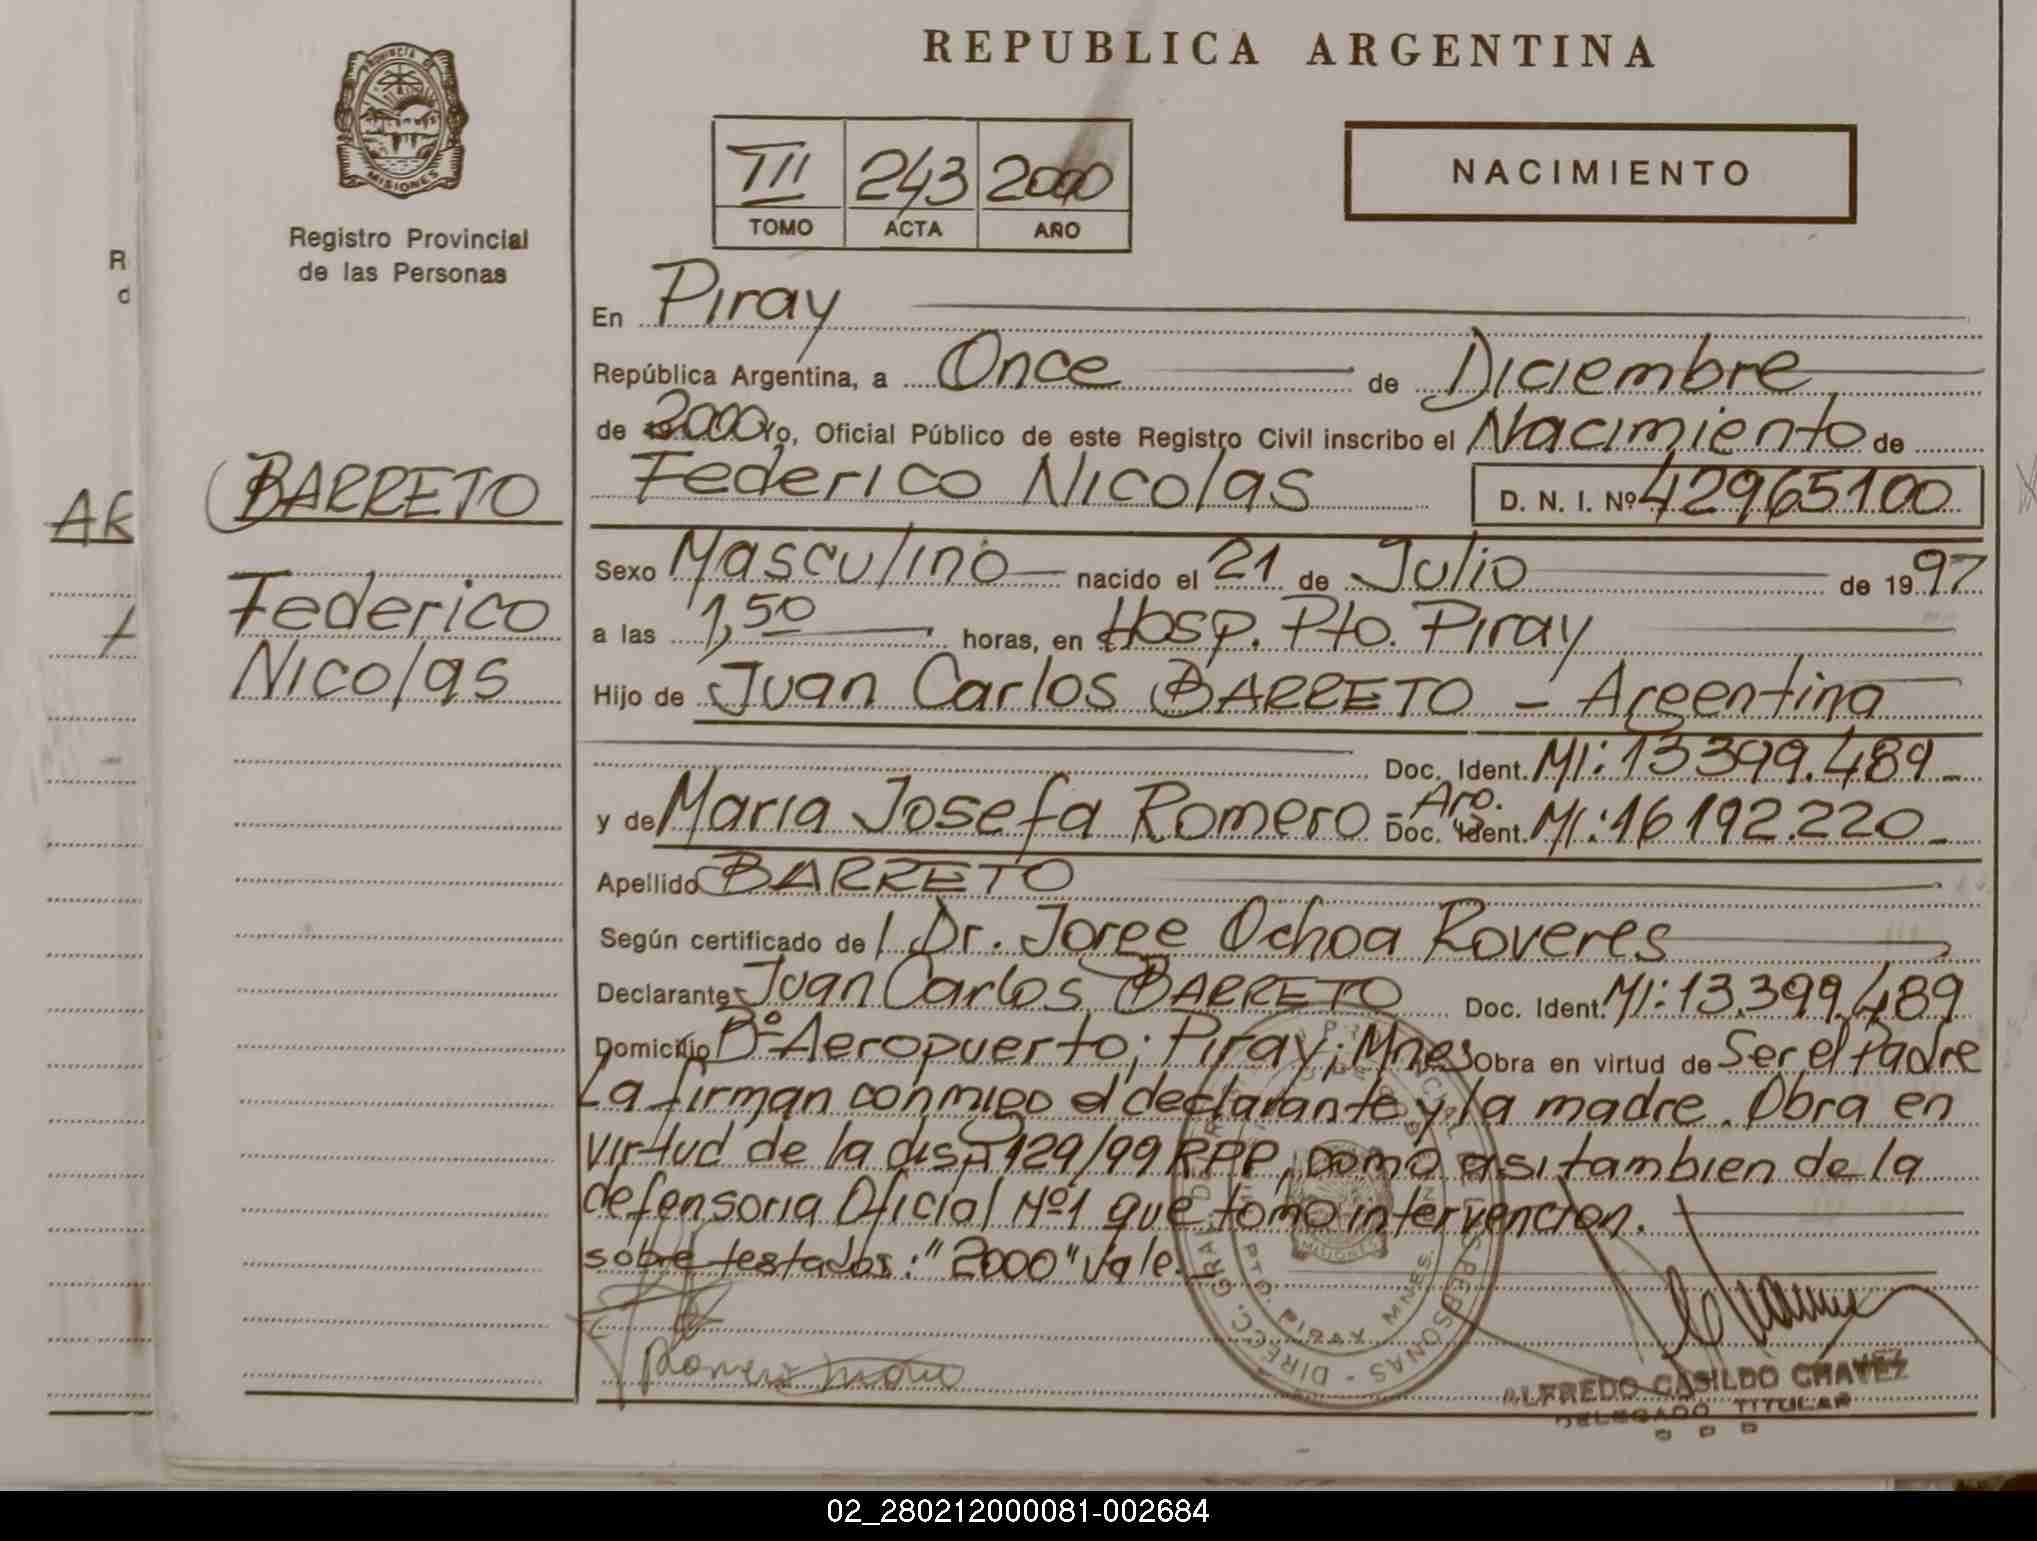 REPUBLICA ARGENTINA
PROVINCIA DE
MISIONES
Registro Provincial
de las Personas
TII 243 2000
TOMO ACTA AÑO
NACIMIENTO
En Piray
República Argentina, a Once de Diciembre
de 2000 Yo, Oficial Público de este Registro Civil inscribo el Nacimiento de
Federico Nicolas D. N. I. Nº 42965100
BARRETO
Federico
Nicolas
Sexo Masculino nacido el 21 de Julio de 1997
a las 1,50 horas, en Hosp. Pto. Piray
Hijo de Juan Carlos BARRETO - Argentina
Doc. Ident. MI: 13399.489
y de Maria Josefa Romero - Arg. Doc. Ident. MI: 16192.220
Apellido BARRETO
Según certificado de l Dr. Jorge Ochoa Roveres
Declarante Juan Carlos BARRETO Doc. Ident. MI: 13.399.489
Domicilio Bº Aeropuerto; Piray; Mnes Obra en virtud de Ser el Padre
La firman conmigo el declarante y la madre. Obra en
virtud de la disp. 129/99 RPP, como asi tambien de la
defensoria Oficial Nº1 que tomo intervencion.
sobre testados: "2000" vale.
PTO. PIRAY MNES.
MISIONES
ALFREDO CASILDO CHAVEZ
DELEGADO TITULAR
02_280212000081-002684